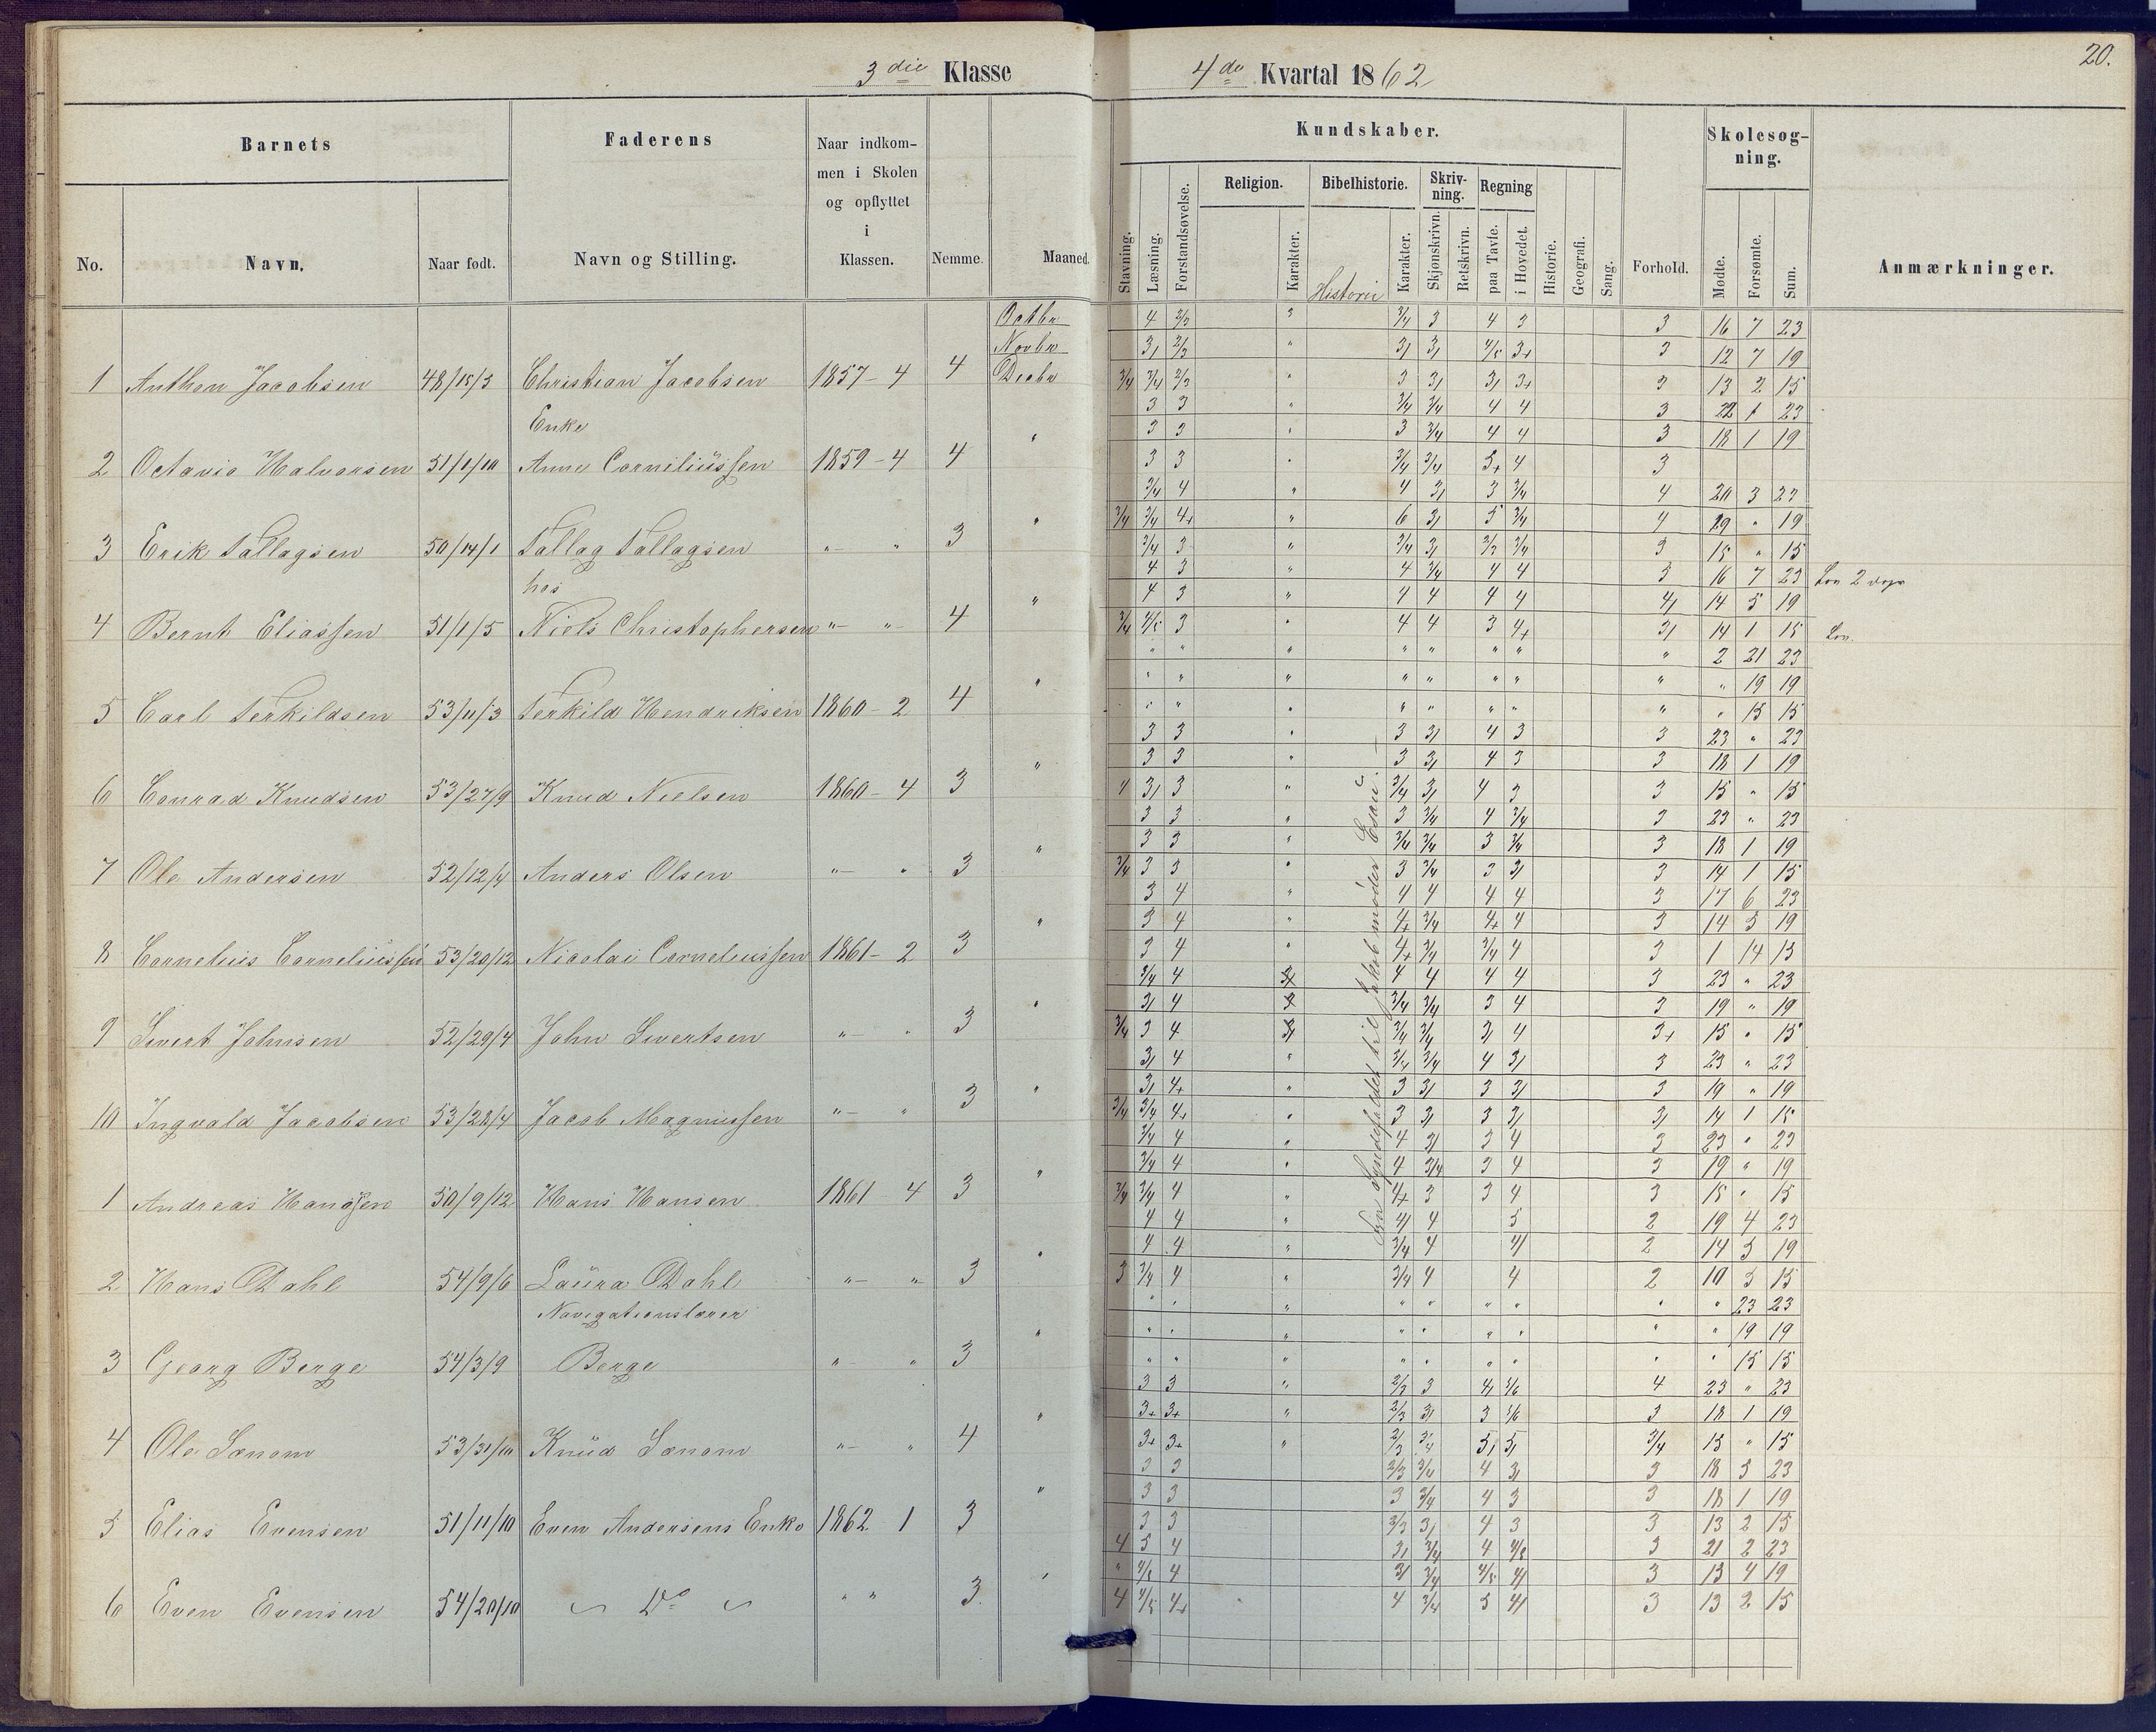 20.
3die Klasse
4de Kvartal 1862
Barnets
Faderens
Naar indkommen i Skolen og opflyttet i Klassen.
Kundskaber.
Skolesøgning.
Religion. Bibelhistorie. Skrivning. Regning
No. Navn. Naar født. Navn og Stilling. Nemme. Maaned.
Stavning. Læsning. Forstandsøvelse. Karakter. Historie Karakter. Skjønskrivn. Retskrivn. paa Tavle. i Hovedet. Historie. Geografi. Sang. Forhold. Mødte. Forsømte. Sum. Anmærkninger.
Octbr 4 2/3 3 3/4 3 4 3 3 16 7 23
Novbr 3/ 2/3 " 3/ 3/ 4/5 3+ 3 12 7 19
1 Anthon Jacobsen 48/15/3 Christian Jacobsen 1857-4 4 Decbr 3/4 3/4 2/3 " 3 3/ 3/ 3+ 3 13 2 15
3 3 " 3/4 3/4 4 4 3 22 1 23
Enke 3 3 " 3 3/4 4 4 3 18 1 19
2 Octavio Halvorsen 51/1/10 Anne Corneliüssen 1859-4 4 " 3 3 " 3/4 3/4 3+ 4 3
3/4 4 " 4 3/ 3 3/4 4 20 3 23
3/4 3/4 4+ " 6 3/ 5 3/4 4 19 " 19
3 Erik Tallagsen 50/14/1 Tallag Tallagsen "- " 3 " 3/4 3 " 3/4 3/ 2/3 3/4 3 15 " 15
4 3 " 4 3/4 4 4 3 16 7 23
hos 4 3 " 4 4 4 4 4/ 14 5 19
4 Bernt Eliassen 51/1/5 Niels Christophersen "- "- 4 " 3/4 4/5 3 " 4 4 3 4+ 3/ 14 1 15
" " " " " " " " 2 21 23
" " " " " " " " " 19 19
5 Carl Terkildsen 53/11/3 Terkild Hendriksen 1860-2 4 " " " " " " " " " " 15 15
3 3 " 3 3/ 4 3 3 23 " 23
3 3 " 3 3/ 4 3 3 18 1 19
6 Conrad Knudsen 53/27/9 Knud Nielsen 1860-4 3 " 4 3/ 3 " 3/4 3/ 4 3 3 15 " 15
3 3 " 3 3/4 4 3/4 3 23 " 23
3 3 " 3/4 3/4 3 3/4 3 18 1 19
7 Ole Andersen 52/12/4 Anders Olsen "- " 3 " 3/4 3 3 " 3 3/4 3 3/ 3 14 1 15
3 4 " 4 4 4 4 3 17 6 23
3 4 " 4+ 3/4 4+ 4 3 14 5 19
8 Cornelius Corneliüssen 53/20/12 Nicolai Corneliussen 1861-2 3 " 3 4 " 4+ 3/4 3/4 4 3 1 14 15
3/4 4 4 4 4 4 3 23 " 23
3/ 4 3/4 3/4 3 4 3 19 " 19
9 Sivert Johnsen 52/29/4 John Sivertsen "- " 3 " 3/4 3 4 3/4 3/4 3/ 4 3+ 15 " 15
3/ 4 " 3/4 3/4 4 3/ 3 23 " 23
3/ 4+ " 3 3/ 3 3/ 3 19 " 19
10 Ingvald Jacobsen 53/28/4 Jacob Magnussen "- " 3 " 3/4 3/4 4+ " 3 3/ 3 3/ 3/ 14 1 15
3/4 4 " 4 3/ 3 4 3 23 " 23
3/4 4 " 4 3/4 3 4 3 19 " 19
1 Andreas Hansen 50/9/12 Hans Hansen 1861 4 3 " 3/4 3/4 4 " 4+ 3 3 4 3 15 " 15
4 4 " 4/ 4 5 2 19 4 23
4 4 " 3/4 4 4/ 2 14 5 19
2 Hans Dahl 54/9/6 Laüra Dahl "- "- 3 " 3 3/4 4 " 3/4 4 4 2 10 5 15
Navigationslærer " " " " " " " " " 23 23
" " " " " " " " " 19 19
3 Georg Berge 54/3/9 Berge "- " 3 " " " " " " " " " " 15 15
3 3 " 2/3 3 4/ 5/6 4 23 " 23
3+ 3+ " 2/3 3/ 3 5/6 3 18 1 19
4 Ole Sænom 53/31/10 Knüd Sænom "- " 4 " 3+ 3+ " 2/3 3/4 5/ 5/ 3/4 15 " 15
3 3 2/3 3/4 4 3/ 3 18 5 23
3 3 3 3/4 4 3 3 18 1 19
5 Elias Evensen 51/11/10 Even Andersens Enke 1862 1 3 " 3 3 2/3 3/ 4 3 3 13 2 15
4 5 4 3/ 3/4 4 4/5 3 21 2 23
" 4/5 4 3/ 3/4 4/5 4/ 3 13 4 19
6 Even Evensen 54/20/10 Do " " 3 " 4 4/5 4+ 4 3/4 5 4/ 3 13 2 15
til Jakob møder Esau.